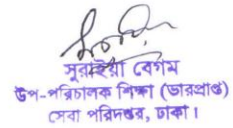 সুরাইয়া বেগম
উপ-পরিচালক শিক্ষা (ভারপ্রাপ্ত)
সেবা পরিদপ্তর, ঢাকা।